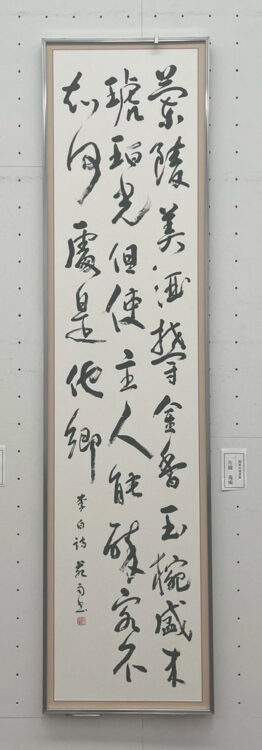 蘭陵美酒欝金香玉椀盛来
琥珀光但使主人能醉客不
知何處是他鄉
李白詩